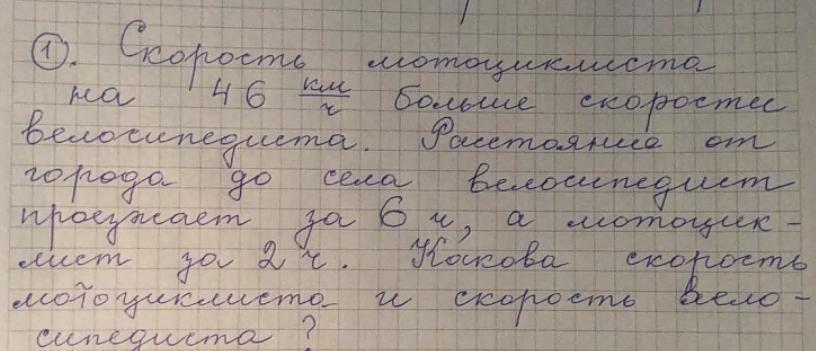 ①. Скорость мотоциклиста
на 46 км/ч больше скорости
велосипедиста. Расстояние от
города до села велосипедист
проезжает за 6 ч, а мотоцик-
лист за 2 ч. Какова скорость
мотоциклиста и скорость вело-
сипедиста?